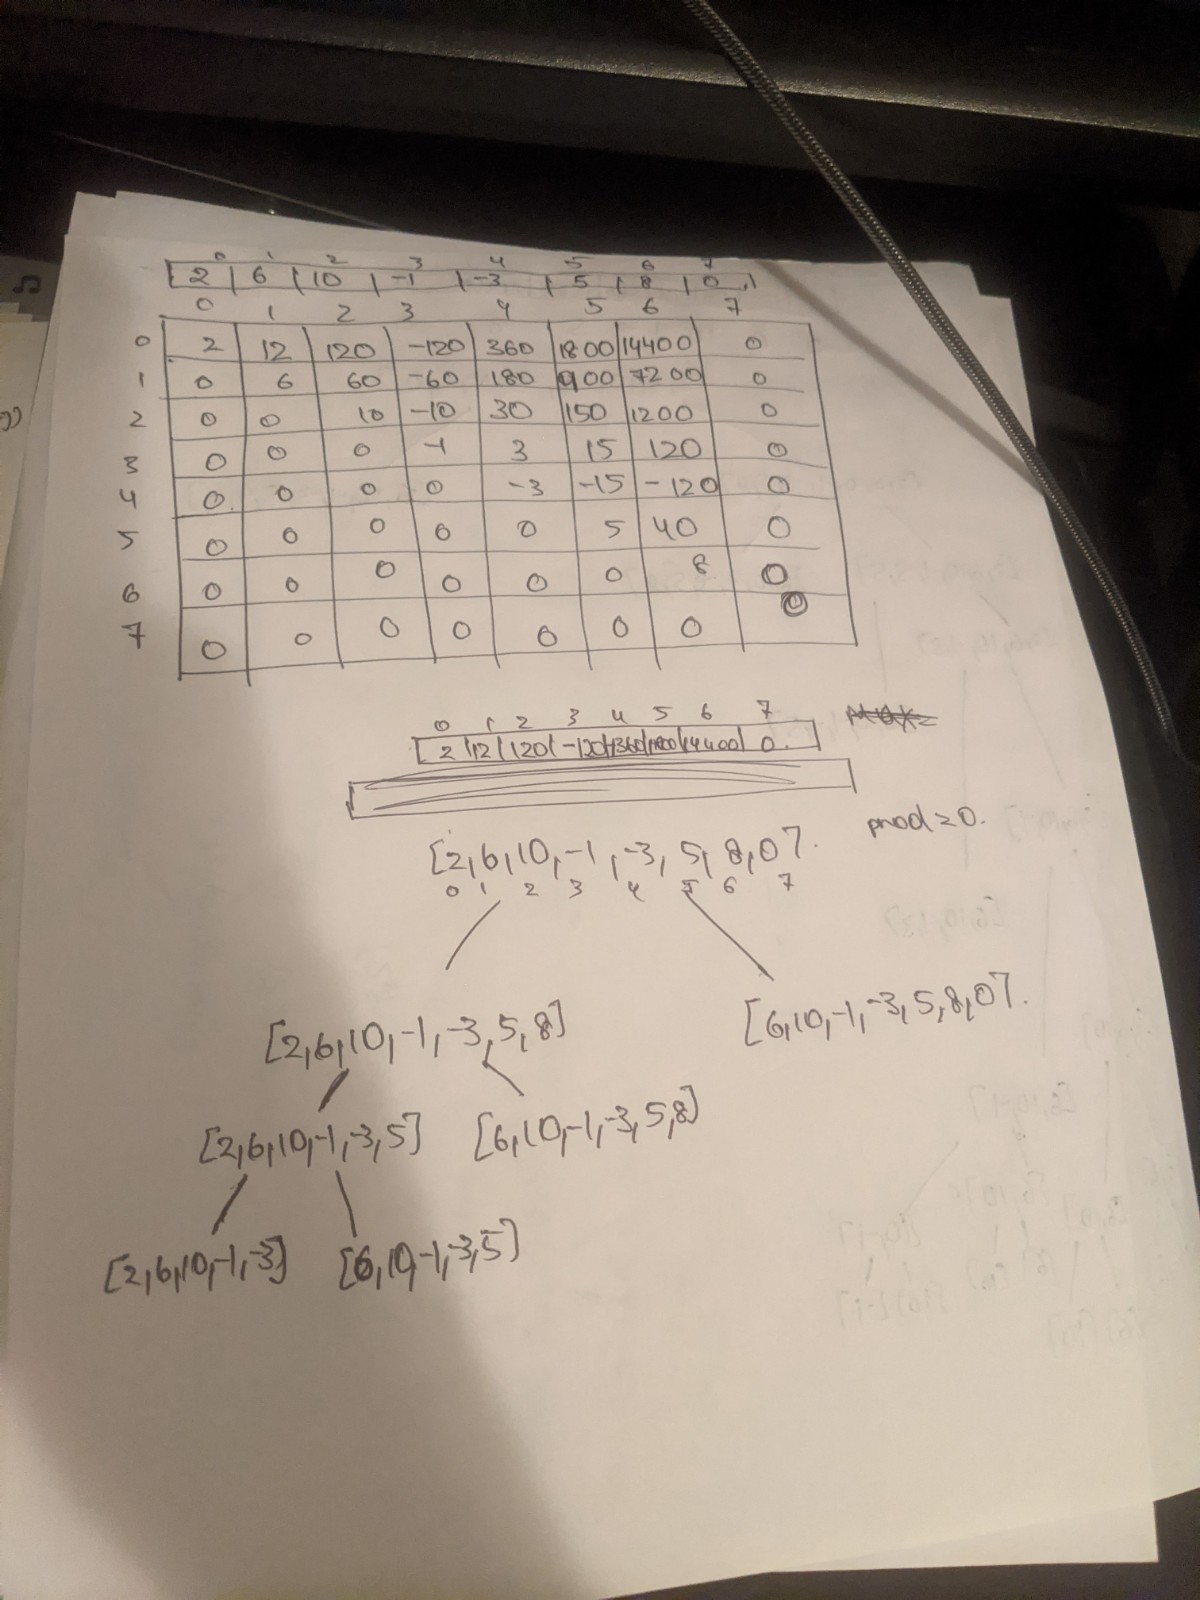 0 1 2 3 4 5 6 7
[2 | 6 | 10 | -1 | -3 | 5 | 8 | 0 ]
0 1 2 3 4 5 6 7
0 2 12 120 -120 360 1800 14400 0
1 0 6 60 -60 180 900 7200 0
2 0 0 10 -10 30 150 1200 0
3 0 0 0 -1 3 15 120 0
4 0 0 0 0 -3 -15 -120 0
5 0 0 0 0 0 5 40 0
6 0 0 0 0 0 0 8 0
7 0 0 0 0 0 0 0 0
0 1 2 3 4 5 6 7
[2 | 12 | 120 | -120 | 360 | 1800 | 14400 | 0 ]
prod = 0.
[2,6,10,-1,-3,5,8,0].
0 1 2 3 4 5 6 7
[2,6,10,-1,-3,5,8] [6,10,-1,-3,5,8,0].
[2,6,10,-1,-3,5] [6,10,-1,-3,5,8]
[2,6,10,-1,-3] [6,10,-1,-3,5]